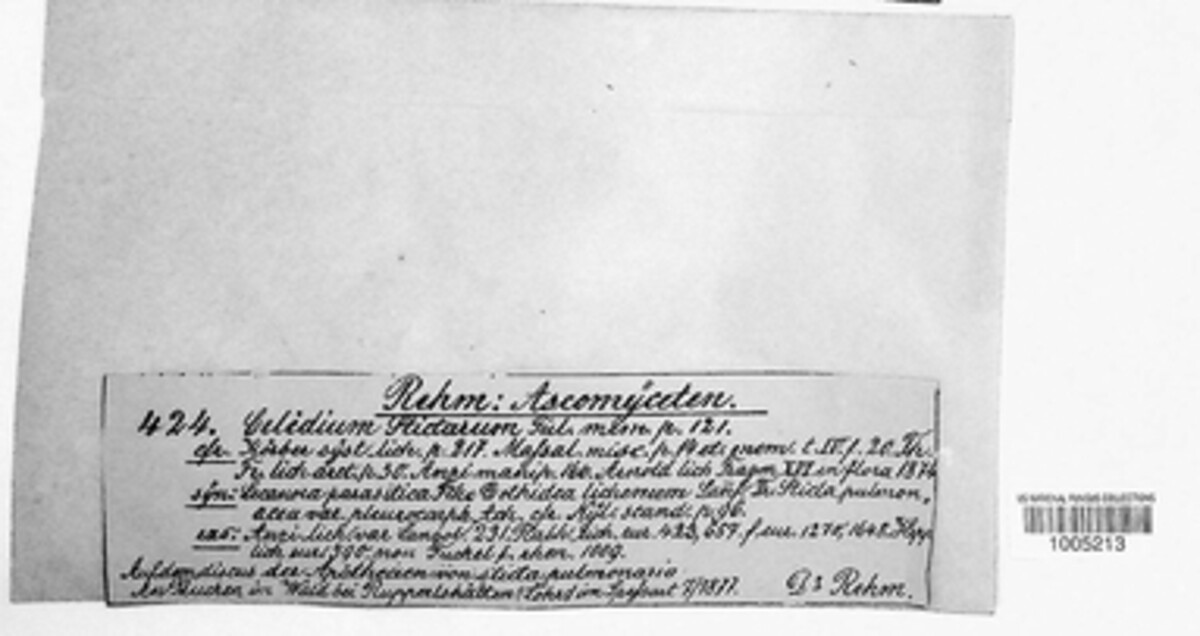 Rehm: Ascomyceten.
424. Celidium Stictarum Tul. mém. p. 121.
cfr. Körber syst. lich. p. 217. Massal. misc. p. 14 et t. IV f. 20. Th.
Fr. lich. arct. p. 30. Anzi manip. 160. Arnold lich. Fragm. XVI in flora 1874
syn: Lecanora parasitica Flke Dothidea lichenum Sticta pulmon,
acea var. pleurocarpa Ach. cfr. Nyl. scand. p. 96.
exs: Anzi lich. rar. Langob. 231. Rabh. lich. eur. 423, 657. f. eur. 1275, 1648. Hepp
lich. eur. 590. non Fuckel f. rhen. 1009.
Auf dem discus der Apothecien von sticta pulmonaria
An Buchen im Wald bei Ruppertshütten (Lohr) im Spessart 7/1877. Dr Rehm.
US NATIONAL FUNGUS COLLECTIONS
1005213